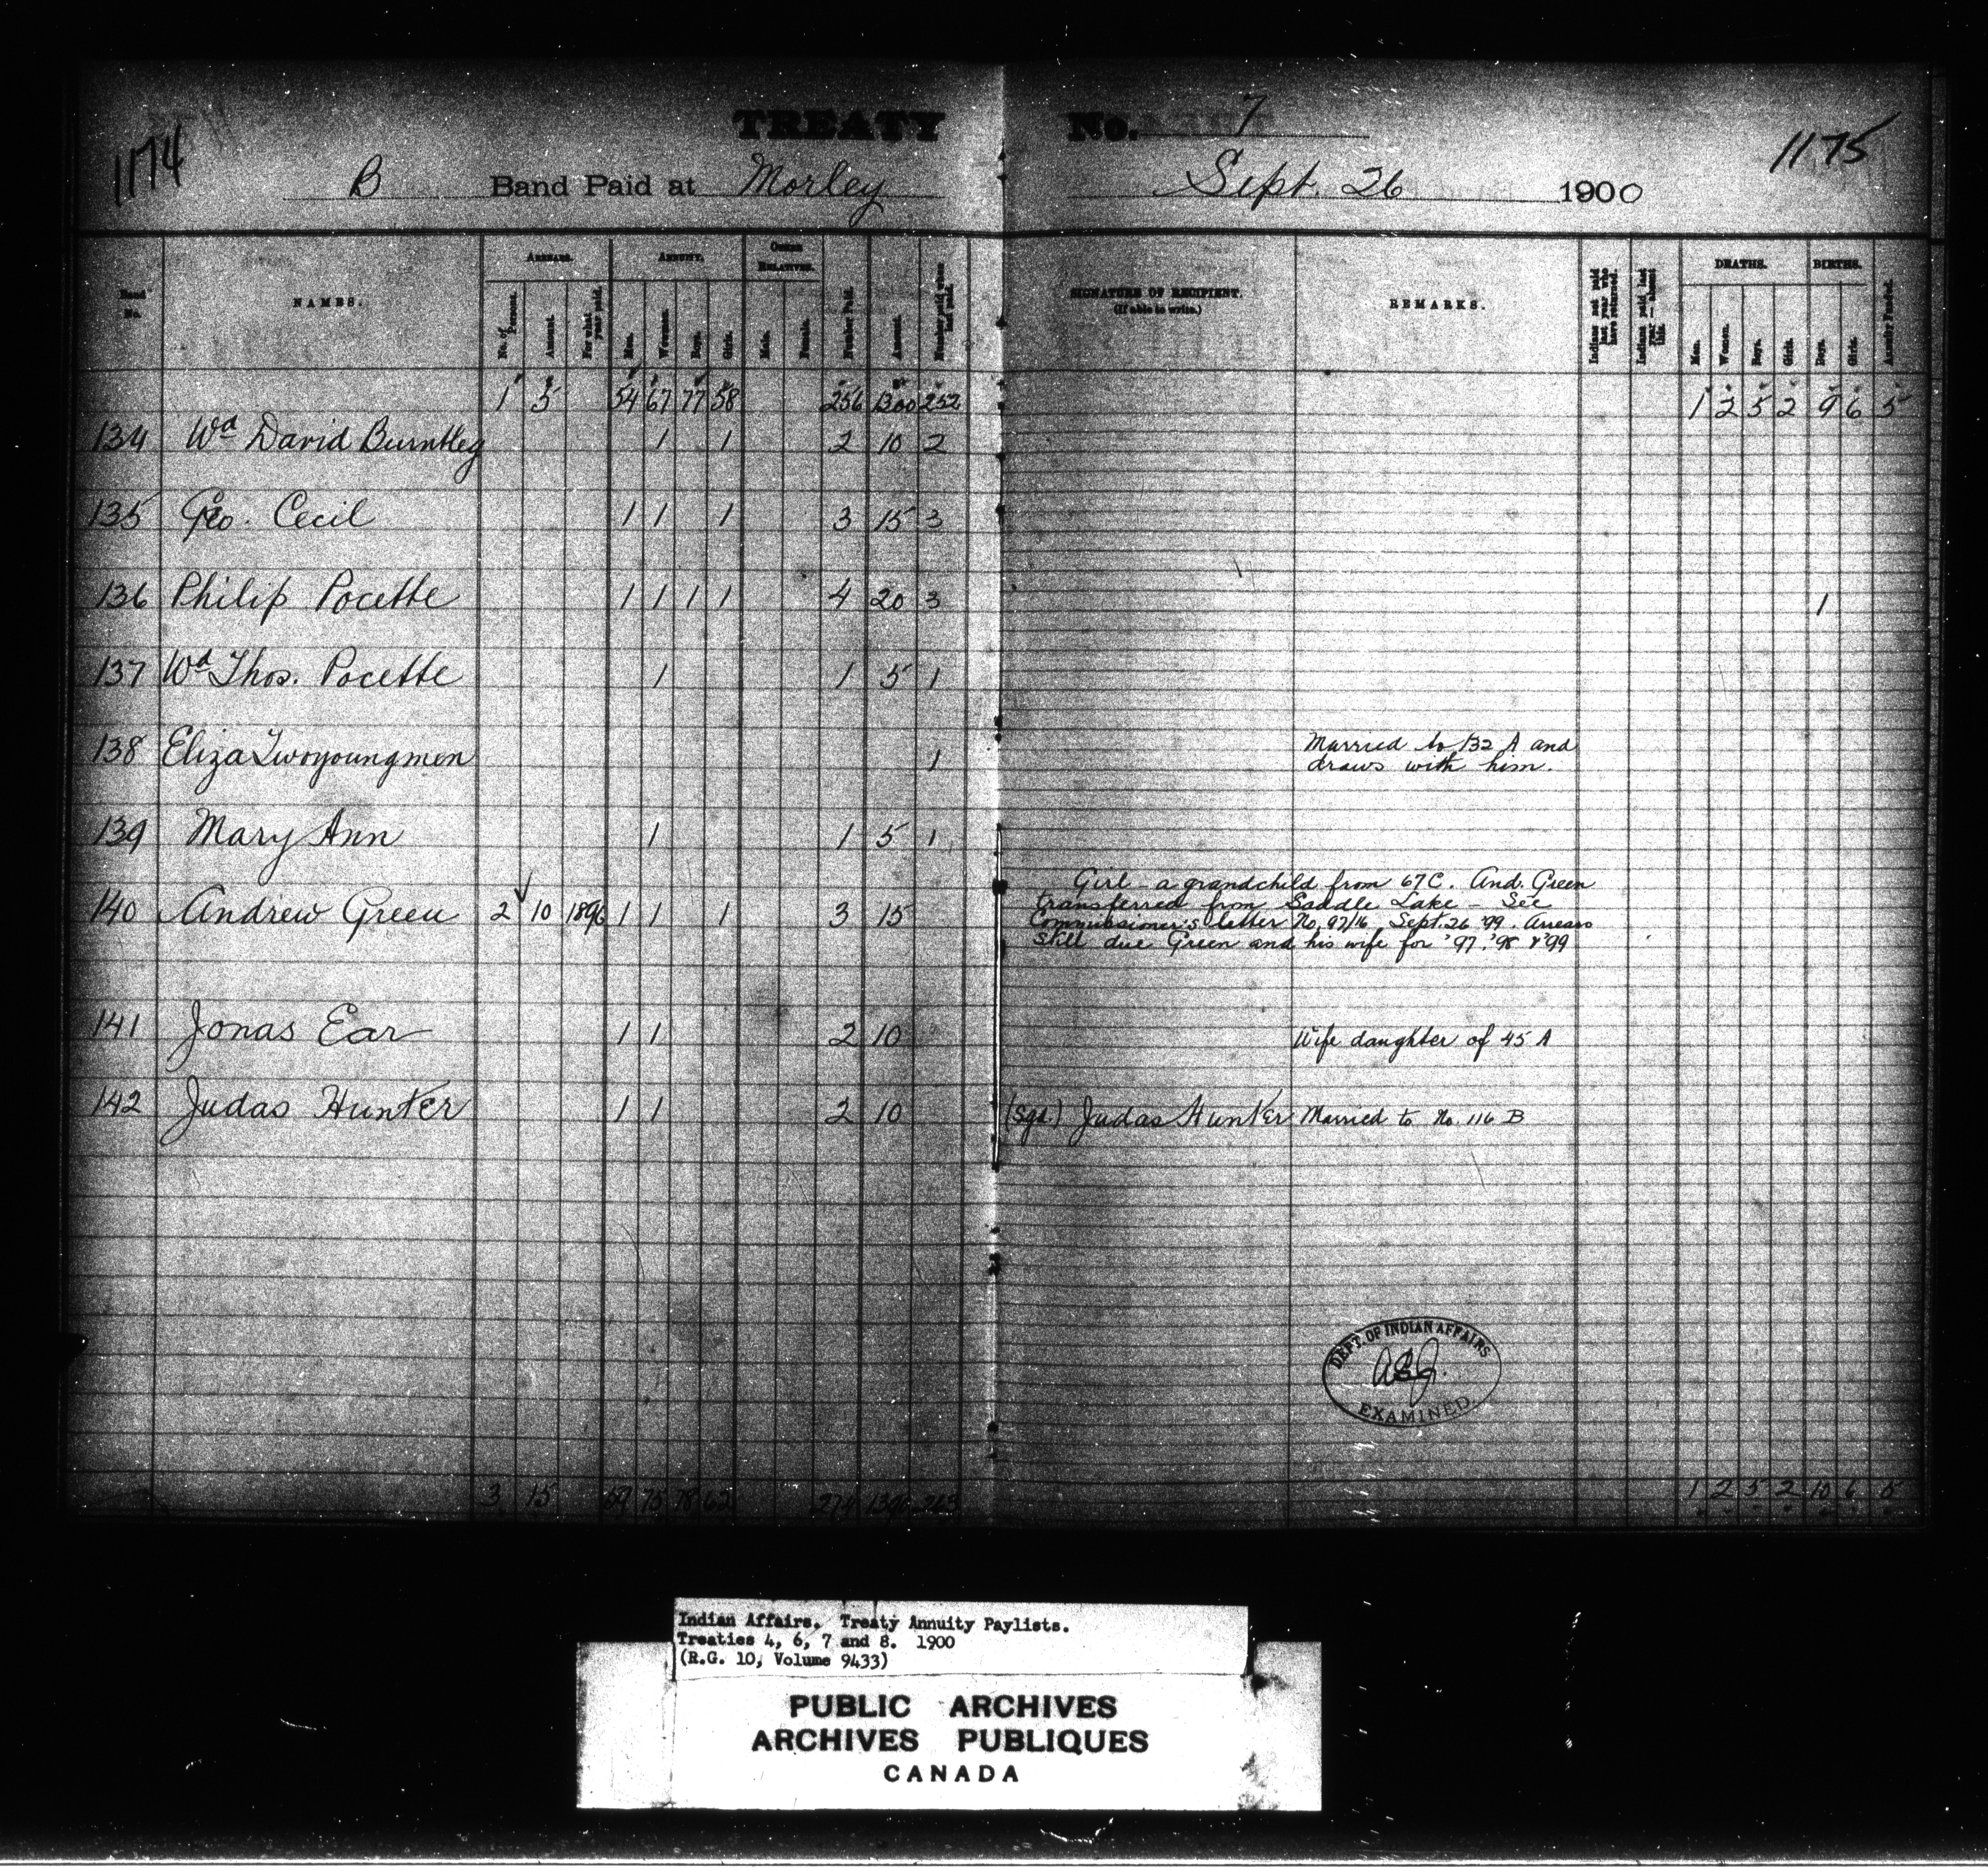 1174
TREATY No. 7
1175
B Band Paid at Morley Sept. 26 1900
Band No.
NAMES.
ARREARS.
No. of Persons.
Amount.
For what year paid.
ANNUITY.
Men.
Women.
Boys.
Girls.
OTHER RELATIVES.
Male.
Female.
Number Paid.
Amount.
Number paid when last paid.
SIGNATURE OF RECIPIENT.
(If able to write.)
REMARKS.
Indians not paid last year who have returned.
Indians paid last year — absent this.
DEATHS.
Men.
Women.
Boys.
Girls.
BIRTHS.
Boys.
Girls.
Annuity Funded.
1 5 54 67 77 58 256 1300 252 1 2 5 2 9 6 5
134 Wd David Burntleg 1 1 2 10 2
135 Geo. Cecil 1 1 1 3 15 3
136 Philip Pocette 1 1 1 1 4 20 3 1
137 Wd Thos. Pocette 1 1 5 1
138 Eliza Twoyoungmen 1 Married to 132 A and
draws with him.
139 Mary Ann 1 1 5 1
140 Andrew Green 2 10 1896 1 1 1 3 15
Girl - a grandchild from 67 C. And. Green
transferred from Saddle Lake - See
Commissioner's letter No. 97/16 Sept. 26 '99. Arrears
still due Green and his wife for '97, '98 & '99
141 Jonas Ear 1 1 2 10 Wife daughter of 45 A
142 Judas Hunter 1 1 2 10 (Sgd.) Judas Hunter Married to No. 116 B
DEPT. OF INDIAN AFFAIRS
EXAMINED
3 15 59 75 78 62 274 1390 263 1 2 5 2 10 6 5
Indian Affairs. Treaty Annuity Paylists.
Treaties 4, 6, 7 and 8. 1900
(R.G. 10, Volume 9433)
PUBLIC ARCHIVES
ARCHIVES PUBLIQUES
CANADA